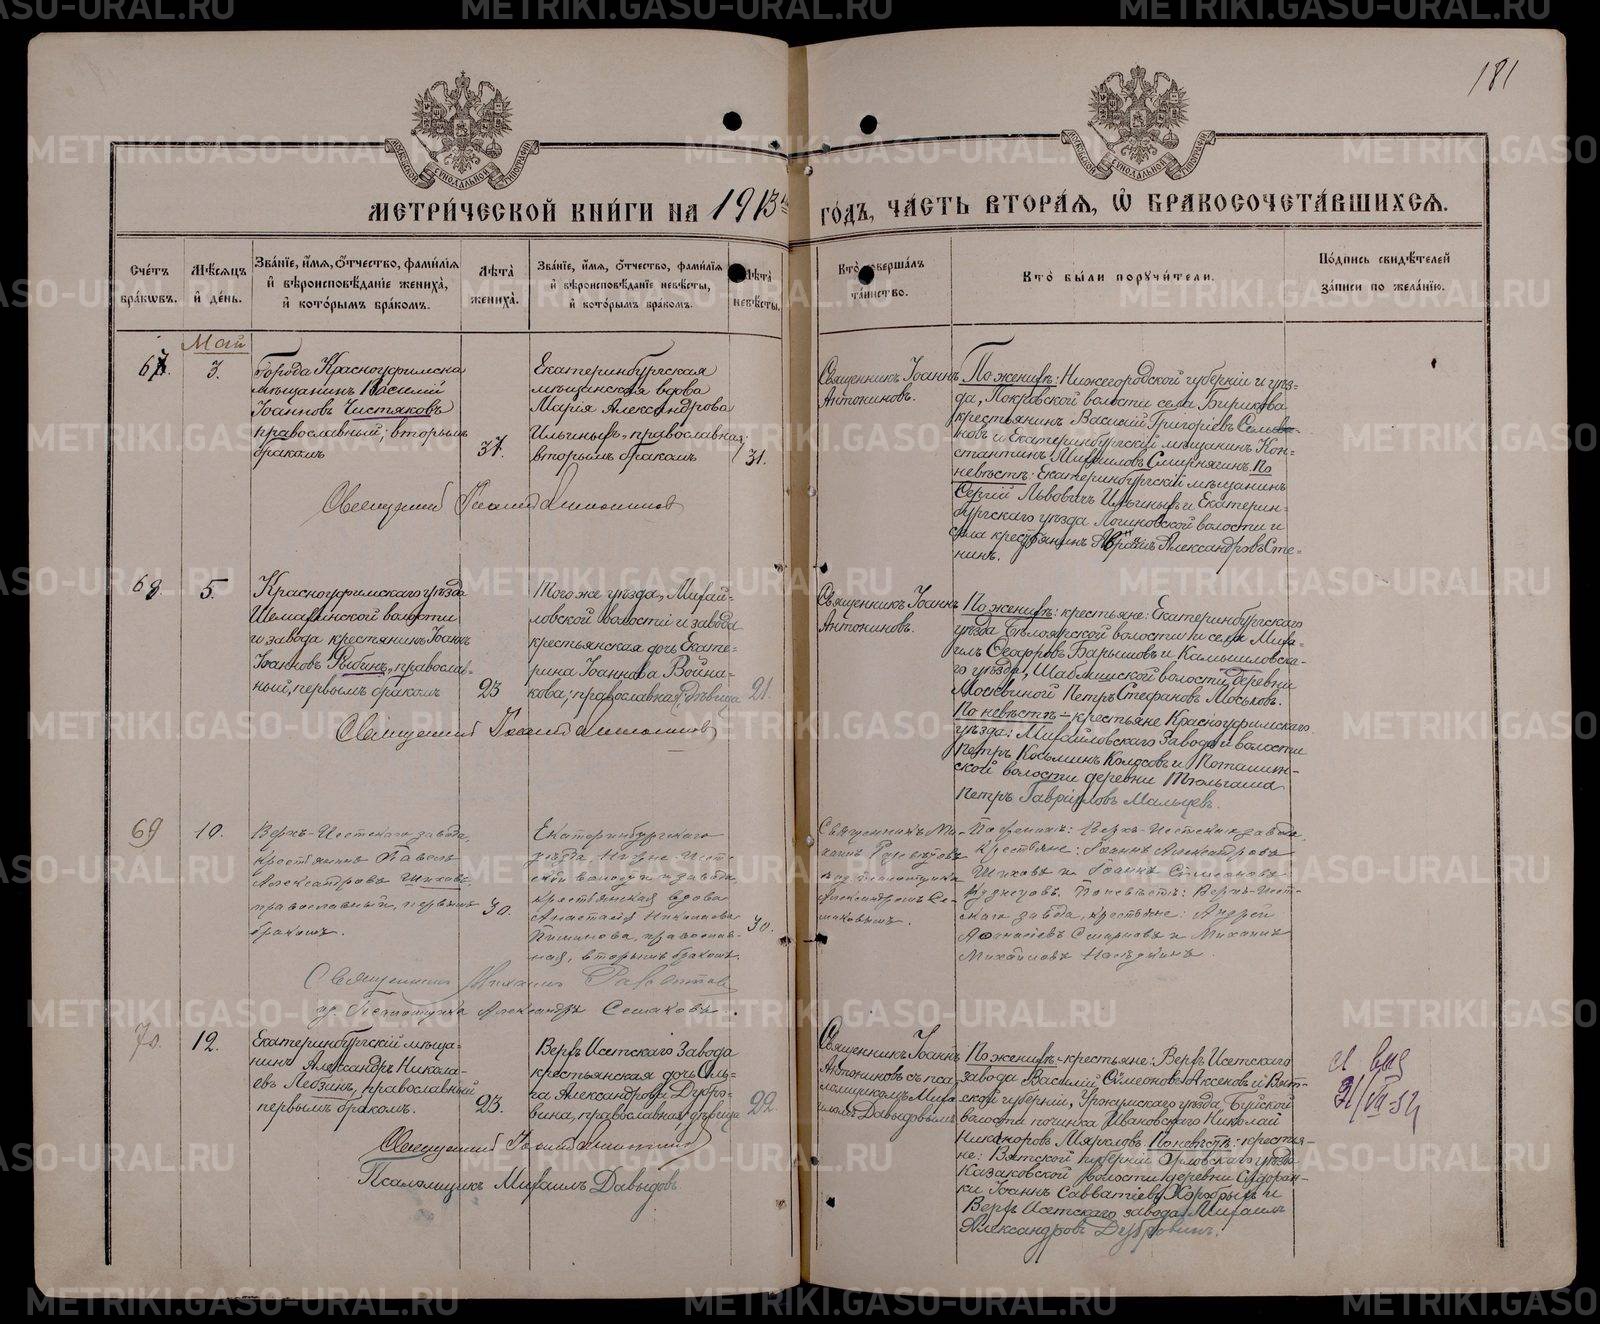 181
МОСКОВСКОЙ СѴНОДАЛЬНОЙ ТИПОГРАФІИ
МОСКОВСКОЙ СѴНОДАЛЬНОЙ ТИПОГРАФІИ
МЕТРИ́ЧЕСКОЙ КНИ́ГИ НА 1913й
ГО́ДЪ, ЧА́СТЬ ВТОРА́Я, Ѡ҆ БРАКОСОЧЕТА́ВШИХСЯ.
Сче́тъ бра́кѡвъ.
Мѣ́сяцъ и҆ де́нь.
Зва́нїе, и҆́мя, ѻ҆́тчество, фами́лїя и҆ вѣроисповѣ́данїе жениха̀, и҆ кото́рымъ бра́комъ.
Лѣ́та жениха̀.
Зва́нїе, и҆́мя, ѻ҆́тчество, фами́лїя и҆ вѣроисповѣ́данїе невѣ́сты, и҆ кото́рымъ бра́комъ.
Лѣ́та невѣ́сты.
Кто̀ соверша́лъ та́инство.
Кто̀ бы́ли поручи́тели.
По́дпись свидѣ́телей за́писи по жела́нїю.
Май
67.
3.
Города Красноуфимска
мѣщанинъ Василій
Іоанновъ Чистяковъ
православный, вторымъ
бракомъ
37.
Екатеринбургская
мѣщанская вдова
Марія Александрова
Ильиныхъ, православная,
вторымъ бракомъ
31.
Священникъ Іоаннъ
Антониновъ.
По женихѣ: Нижегородской губерніи и уѣз-
да, Покровской волости села Бирюкова
крестьянинъ Василій Григорьевъ
и Екатеринбургскій мѣщанинъ Кон-
стантинъ Михаиловъ Смирнягинъ. По
невѣстѣ: Екатеринбургскій мѣщанинъ
Сергій Львовичъ Ильиныхъ и Екатерин-
бургскаго уѣзда Логиновской волости и
села крестьянинъ Александровъ Сте-
нинъ.
Священникъ Іоаннъ Антониновъ
68
5.
Красноуфимскаго уѣзда
Шемахинской волости
и завода крестьянинъ Іоаннъ
Іоанновъ Рыбинъ, православ-
ный, первымъ бракомъ
23
Того же уѣзда, Михай-
ловской волости и завода
крестьянская дочь Екате-
рина Іоаннова Война-
кова, православная, дѣвица
21.
Священникъ Іоаннъ
Антониновъ.
По женихѣ: крестьяне: Екатеринбургскаго
уѣзда Бѣлоярской волости и села Миха-
илъ Ѳеодоровъ Барышовъ и Камышловска-
го уѣзда, волости, деревни
Москвиной Петръ Стефановъ Моськовъ.
По невѣстѣ - крестьяне Красноуфимскаго
уѣзда: Михайловскаго Завода и волости
Петръ Косьминъ Колосовъ и Поташин-
ской волости деревни Тюльгаша
Петръ Гавриловъ Мальцевъ.
Священникъ Іоаннъ Антониновъ
69
10.
Верхъ-Исетскаго завода,
крестьянинъ Павелъ
Александровъ Шиховъ,
православный, первымъ
бракомъ.
30.
Екатеринбургскаго
уѣзда Нижне-Исет-
ской волости и завода,
крестьянская вдова
Анастасія Николаева
православ-
ная, вторымъ бракомъ.
30.
Священникъ Ми-
хаилъ
и. д. псаломщика
Александромъ Се-
маковымъ.
По женихѣ: Верхъ-Исетскаго завода
крестьяне: Іоаннъ Александровъ
Шиховъ и Іоаннъ Симеоновъ
По невѣстѣ: Верхъ-Исет-
скаго завода, крестьяне: Андрей
Аѳанасіевъ Смирновъ и Михаилъ
Михайловъ
Священникъ Михаилъ
и. д. Псаломщика Александръ Семаковъ.
70.
12.
Екатеринбургскій мѣща-
нинъ Александръ Никола-
евъ Лебзинъ, православный
первымъ бракомъ.
23.
Верхъ Исетскаго Завода
крестьянская дочь Оль-
га Александрова Дубро-
вина, православная, дѣвица
22
Священникъ Іоаннъ
Антониновъ съ пса-
ломщикомъ Миха-
иломъ Давыдовымъ
По женихѣ - крестьяне: Верхъ Исетскаго
завода Василій Симеоновъ Аксеновъ и Вят-
ской губерніи, Уржумскаго уѣзда, Буйской
волости починка Ивановскаго Николай
Никаноровъ По невѣстѣ: крестья-
не: Вятской губерніи Орловскаго уѣзда
Казаковской волости деревни Сидорян-
ки Іоаннъ Савватіевъ Хоробрыхъ и
Верхъ Исетскаго завода Михаилъ
Александровъ Дубровинъ.
31/VII-54
Священникъ Іоаннъ Антониновъ
Псаломщикъ Михаилъ Давыдовъ
METRIKI.GASO-URAL.RU